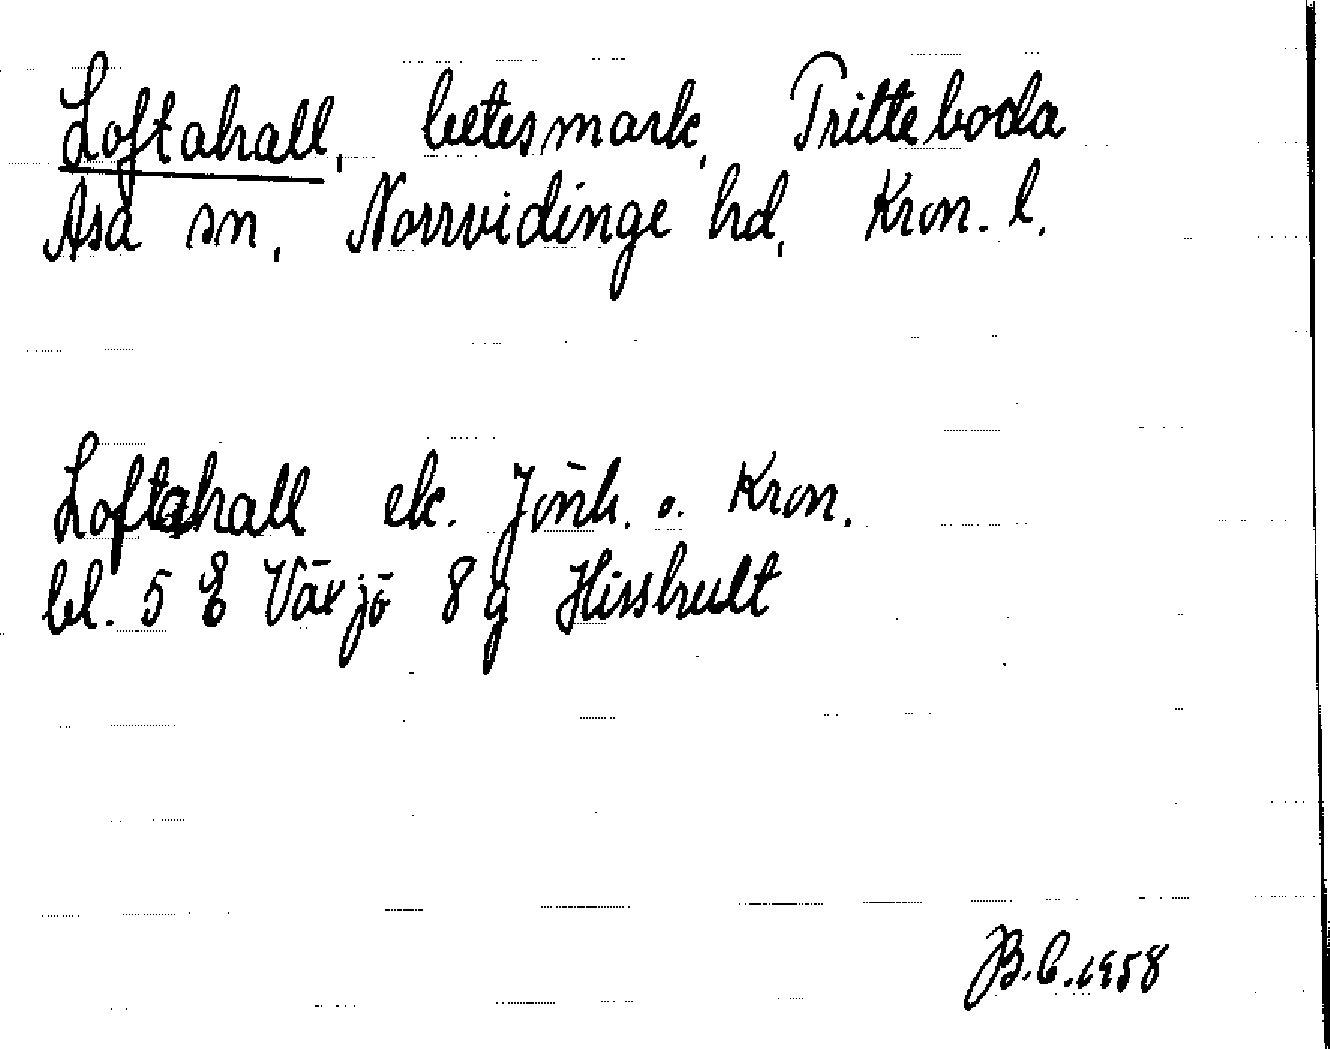 Loftahall, betesmark, Tritteboda
Asa sn, Norrvidinge hd, Kron. l.
Loftahall ek. Jönk. o. Kron.
bl. 5 E Växjö 8 g Hisshult
B.C. 1958